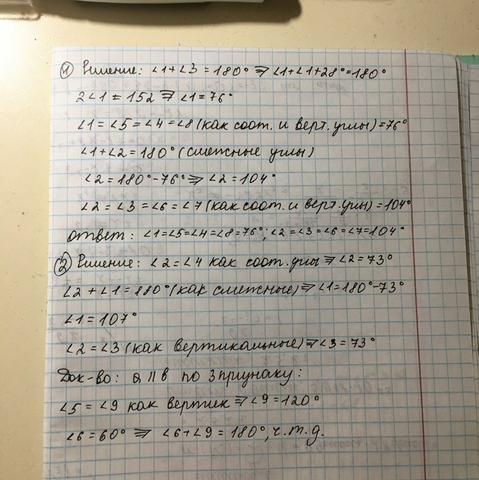 ① Решение: ∠1+∠3=180° ⇒ ∠1+∠1+28°=180°
2∠1=152 ⇒ ∠1=76°
∠1=∠5=∠4=∠8 (как соот. и верт. углы)=76°
∠1+∠2=180° (смежные углы)
∠2=180°-76° ⇒ ∠2=104°
∠2=∠3=∠6=∠7 (как соот. и верт. углы)=104°
Ответ: ∠1=∠5=∠4=∠8=76°; ∠2=∠3=∠6=∠7=104°
② Решение: ∠2=∠4 как соот. углы ⇒ ∠2=73°
∠2+∠1=180° (как смежные) ⇒ ∠1=180°-73°
∠1=107°
∠2=∠3 (как вертикальные) ⇒ ∠3=73°
Док-во: a∥в по 3 признаку:
∠5=∠9 как вертик ⇒ ∠9=120°
∠6=60° ⇒ ∠6+∠9=180°, ч.т.д.